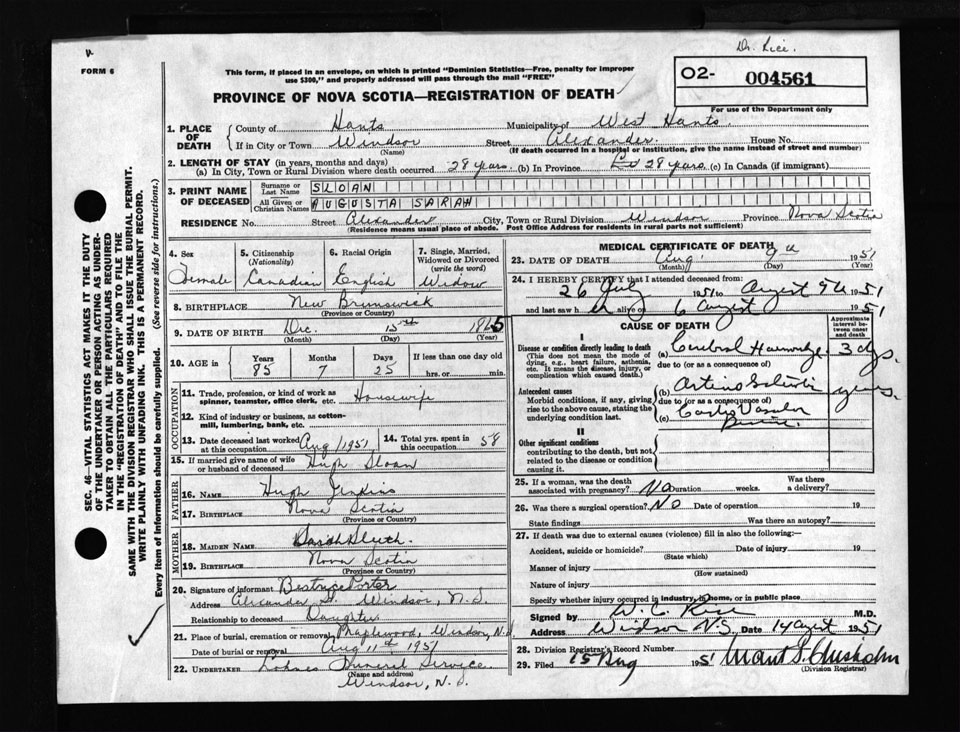 Dr. Rice.
FORM 6
This form, if placed in an envelope, on which is printed "Dominion Statistics—Free, penalty for improper
use $300," and properly addressed will pass through the mail "FREE"
PROVINCE OF NOVA SCOTIA—REGISTRATION OF DEATH
O2- 004561
For use of the Department only
1. PLACE OF DEATH
County of Hants Municipality of West Hants.
If in City or Town Windsor Street Alexander. House No.
(Name) (If death occurred in a hospital or institution, give the name instead of street and number)
2. LENGTH OF STAY (in years, months and days)
(a) In City, Town or Rural Division where death occurred 28 years. (b) In Province 28 years. (c) In Canada (if immigrant)
3. PRINT NAME OF DECEASED
Surname or Last Name SLOAN
All Given or Christian Names AUGUSTA SARAH
RESIDENCE No. Street Alexander City, Town or Rural Division Windsor Province Nova Scotia
(Residence means usual place of abode. Post Office Address for residents in rural parts not sufficient)
4. Sex Female
5. Citizenship (Nationality) Canadian
6. Racial Origin English
7. Single, Married, Widowed or Divorced (write the word) Widow
8. BIRTHPLACE New Brunswick
(Province or Country)
9. DATE OF BIRTH Dec. 15th 1865
(Month) (Day) (Year)
10. AGE in Years Months Days If less than one day old
85 7 25 hrs. or min.
OCCUPATION
11. Trade, profession, or kind of work as
spinner, teamster, office clerk, etc. Housewife
12. Kind of industry or business, as cotton-
mill, lumbering, bank, etc.
13. Date deceased last worked at this occupation Aug 1951
14. Total yrs. spent in this occupation 58
15. If married give name of wife
or husband of deceased Hugh Sloan
FATHER
16. NAME Hugh Jenkins
17. BIRTHPLACE Nova Scotia
(Province or Country)
MOTHER
18. MAIDEN NAME Sarah
19. BIRTHPLACE Nova Scotia
(Province or Country)
20. Signature of informant Beatrice Porter
Address Alexander St. Windsor, N.S.
Relationship to deceased Daughter
21. Place of burial, cremation or removal Maplewood, Windsor, N.S.
Date of burial or removal Aug 11th 1951
22. UNDERTAKER Lohnes Funeral Service.
(Name and address)
Windsor, N.S.
MEDICAL CERTIFICATE OF DEATH
23. DATE OF DEATH Aug. 9th 1951
(Month) (Day)
24. I HEREBY CERTIFY that I attended deceased from:
26 July 1951 to August 9th 1951
and last saw her alive on 6 August 1951
CAUSE OF DEATH
Approximate interval between onset and death
I
Disease or condition directly leading to death
(This does not mean the mode of
dying, e.g., heart failure, asthenia,
etc. It means the disease, injury, or
complication which caused death.)
(a) Cerebral Haemorrhage 3 dys.
due to (or as a consequence of)
Antecedent causes
Morbid conditions, if any, giving
rise to the above cause, stating the
underlying condition last.
(b) years.
due to (or as a consequence of)
(c) Cardio Vascular
II
Other significant conditions
contributing to the death, but not
related to the disease or condition
causing it.
25. If a woman, was the death
associated with pregnancy? No Duration weeks. Was there a delivery?
26. Was there a surgical operation? No Date of operation 19
State findings Was there an autopsy?
27. If death was due to external causes (violence) fill in also the following:—
Accident, suicide or homicide? Date of injury 19
(State which)
Manner of injury
(How sustained)
Nature of injury
Specify whether injury occurred in industry, in home, or in public place
Signed by W. C. Rice M.D.
Address Windsor N.S. Date 14 August 1951
28. Division Registrar's Record Number
29. Filed 15 Aug 1951
(Division Registrar)
SEC. 46—VITAL STATISTICS ACT MAKES IT THE DUTY
OF THE UNDERTAKER OR PERSON ACTING AS UNDER-
TAKER TO OBTAIN ALL THE PARTICULARS REQUIRED
IN THE "REGISTRATION OF DEATH" AND TO FILE THE
SAME WITH THE DIVISION REGISTRAR WHO SHALL ISSUE THE BURIAL PERMIT.
WRITE PLAINLY WITH UNFADING INK. THIS IS A PERMANENT RECORD.
Every item of information should be carefully supplied. (See reverse side for instructions.)